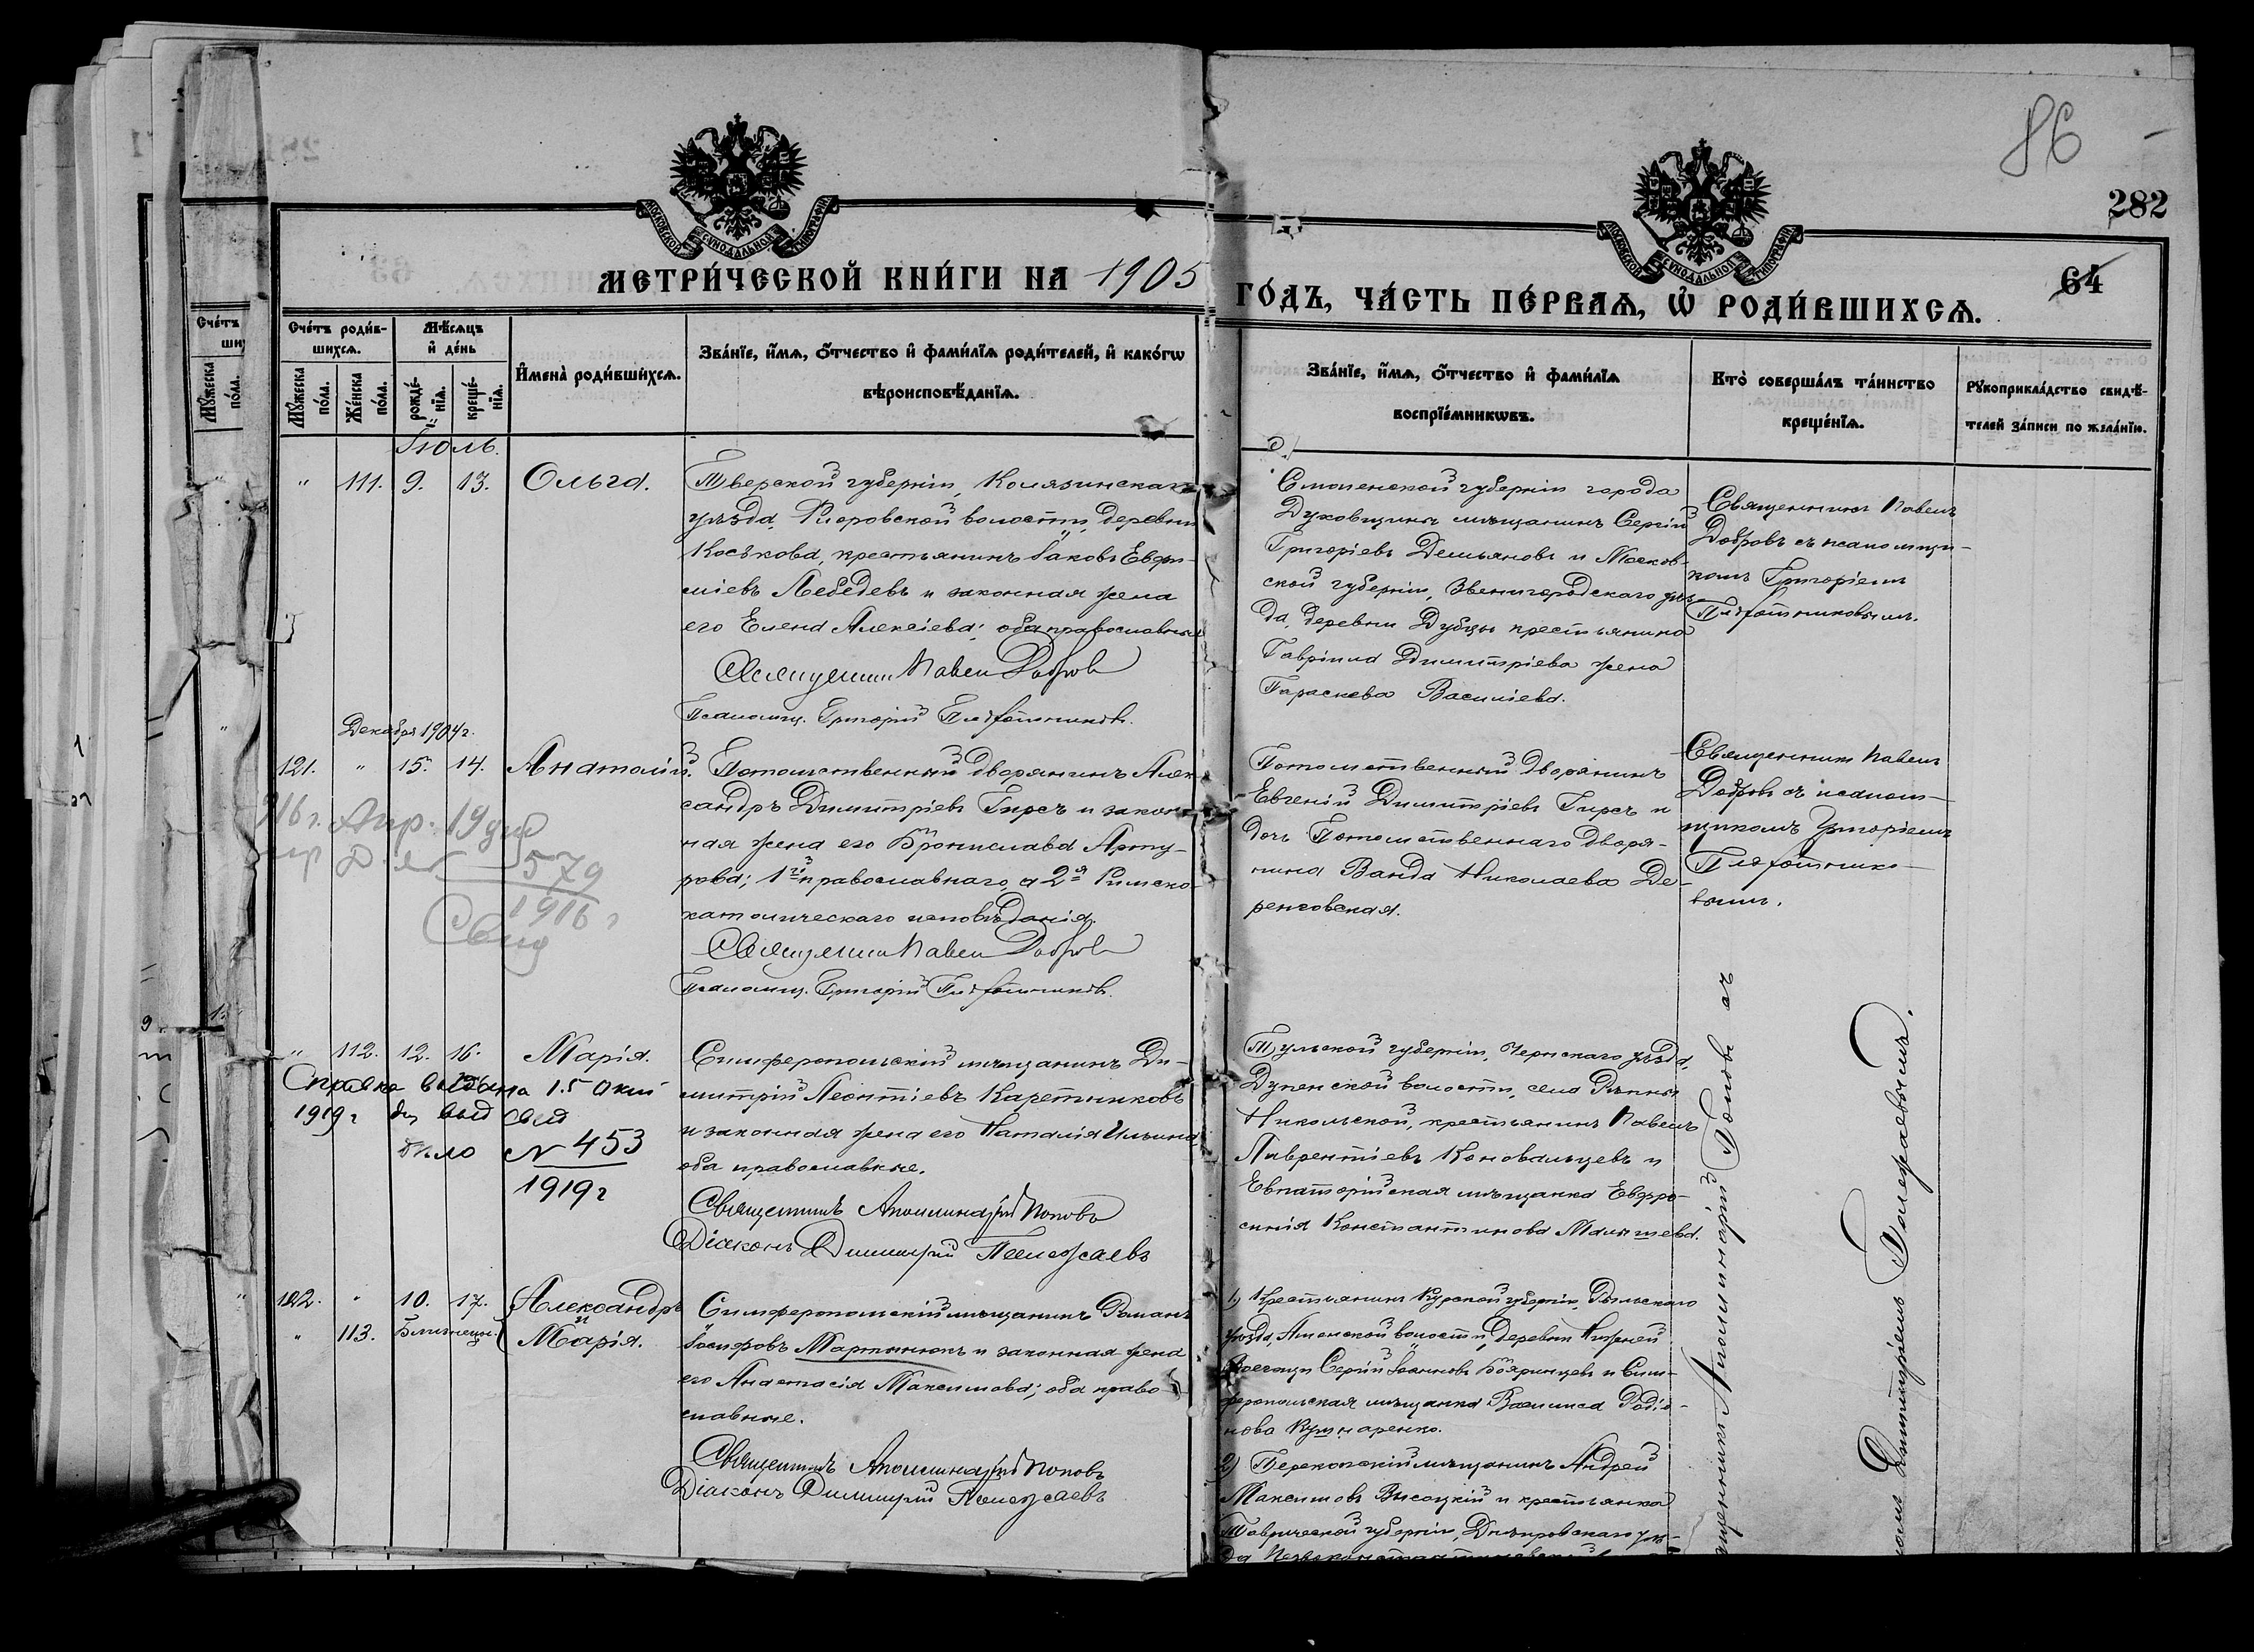 86
282
64
МОСКОВСКОЙ СѴНОДАЛЬНОЙ ТИПОГРАФІИ
МОСКОВСКОЙ СѴНОДАЛЬНОЙ ТИПОГРАФІИ
МЕТРИ́ЧЕСКОЙ КНИ́ГИ НА 1905
ГО́ДЪ, ЧА́СТЬ ПЕ́РВАѦ, Ѡ РОДИ́ВШИХСѦ.
Сче́тъ роди́в-
шихсѧ.
Мѣ́сѧцъ
и҆ де́нь
Мꙋ́жеска по́ла.
Же́нска по́ла.
рожде́-
нїѧ.
креще́-
нїѧ.
И҆мена̀ роди́вшихсѧ.
Зва́нїе, и҆́мѧ, ѻ҆́тчество и҆ фами́лїѧ роди́телей, и҆ како́гѡ
вѣроисповѣ́данїѧ.
Зва́нїе, и҆́мѧ, ѻ҆́тчество и҆ фами́лїѧ
воспрїе́мникѡвъ.
Кто̀ соверша́лъ та́инство
креще́нїѧ.
Рꙋкоприкла́дство свидѣ́-
телей за́писи по жела́нїю.
Іюль.
" 111. 9. 13. Ольга.
Тверской губерніи, Колязинскаго
уѣзда, деревни
Коськова, крестьянинъ Іаковъ Евфи-
міевъ Лебедевъ и законная жена
его Елена Алексіева; оба православные
Священник Павел Добров
Псаломщ. Григорій
Смоленской губерніи города
Духовщины мѣщанинъ Сергій
Григоріевъ Демьяновъ и Москов-
ской губерніи, Звенигородскаго уѣз-
да, деревни Дубцы крестьянина
Гавріила Димитріева жена
Параскева Василіева.
Священникъ Павелъ
Добровъ съ псаломщи-
комъ Григоріемъ
Декабря 1904 г.
121. " 15. 14. Анатолій.
Потомственный дворянинъ Алек-
сандръ Димитріевъ Гирсъ и закон-
ная жена его Брониславa Арту-
рова; 1й православнаго, а 2я Римско-
католическаго исповѣданія.
Священник Павел Добров
Псаломщ. Григорій
Потомственный дворянинъ
Евгеній Димитріевъ Гирсъ и
дочь Потомственнаго дворя-
нина Ванда Николаева Де-
ренговская.
Священникъ Павелъ
Добровъ съ псалом-
щикомъ Григоріемъ
916 г. Апр. 19 дня
579
1916 г
Свид
" 112. 12. 16. Марія.
Симферопольскій мѣщанинъ Ди-
митрій Леонтіевъ Каретниковъ
и законная жена его Наталія Ильина,
оба православные.
Священникъ Аполлинарій Поповъ
Діаконъ Димитрій Полежаевъ
Справка выдана 15 Окт
1919 г выд свид
дѣло № 453
1919 г
Тульской губерніи, Чернскаго уѣзда,
волости, села
Никольской, крестьянинъ Павелъ
Лаврентіевъ Коновальцевъ и
Евпаторійская мѣщанка Евфро-
синія Константинова Малышева.
122. " 10. 17. Александръ
и
" 113. Близнецы. Марія.
Симферопольскій мѣщанинъ Романъ
Іосифовъ Мартынюкъ и законная жена
его Анастасія Максимова; оба право-
славные.
Священникъ Аполлинарій Поповъ
Діаконъ Димитрій Полежаевъ
1) Крестьянинъ Курской губерніи, Рыльскаго
уѣзда, волости, деревни Нижней
Сергій Іоанновъ Бояринцевъ и Сим-
феропольская мѣщанка Василиса Родіо-
нова Кушнаренко.
2) Перекопскій мѣщанинъ Андрей
Максимовъ Высоцкій и крестьянка
Таврической губерніи, Днѣпровскаго уѣз-
да
Аполлинарій Поповъ съ
Димитріемъ Полежаевымъ.